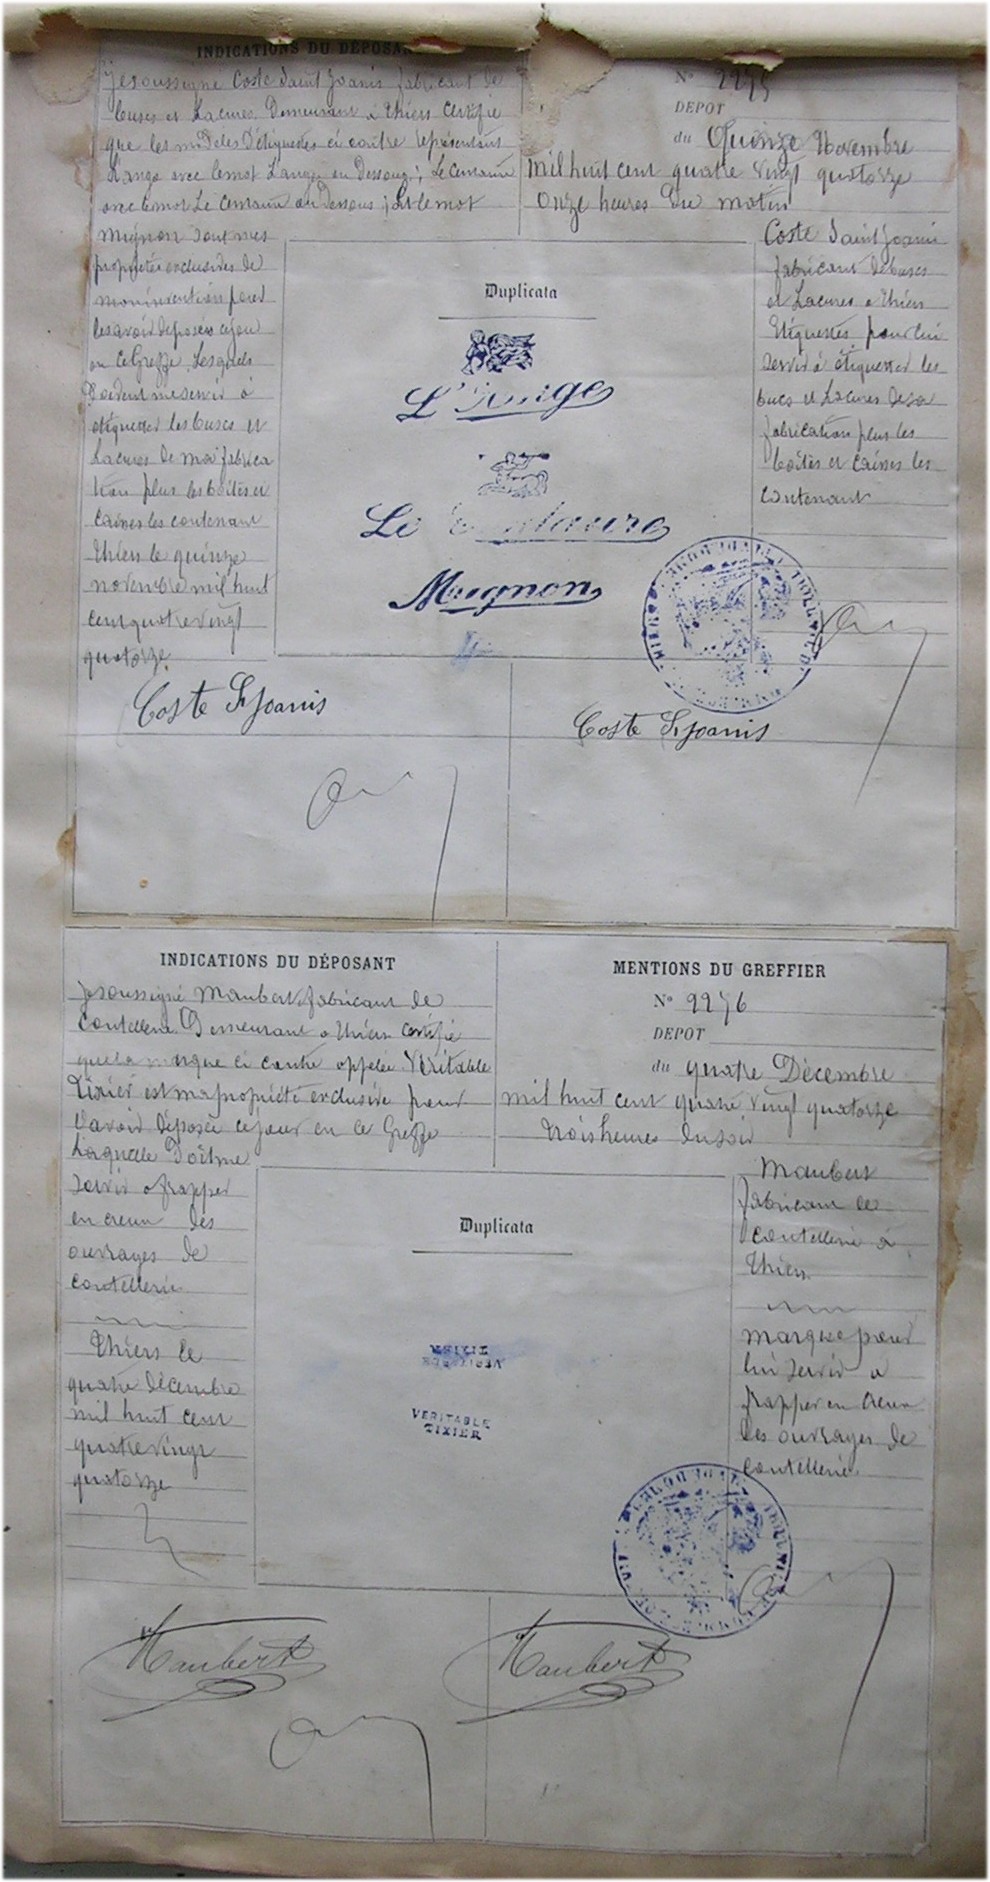 INDICATIONS DU DÉPOSANT
Je soussigné Coste Saint Joanis fabricant de
buscs et Lacures Demeurant a Thiers Certifie
que les modeles D'étiquettes ci contre représentant
L'ange avec le mot L'ange en Dessous; Le Centaure
avec le mot Le Centaure au Dessous; et le mot
Mignon sont mes
propriétés exclusives de
mon invention pour
les avoir déposées ce jour
en ce Greffe Lesquels
Doivent me servir à
étiqueter les buscs et
Lacures de ma fabrica
tion plus les boîtes et
caisses les contenant
Thiers le quinze
novembre mil huit
cent quatre vingt
quatorze.
Nº 2275
DEPOT
du Quinze Novembre
Mil huit cent quatre vingt quatorze
onze heures du matin
Coste Saint Joanis
fabricant de buscs
et Lacures a Thiers
Etiquettes pour lui
servir à étiqueter les
buscs et Lacures de sa
fabrication plus les
boîtes et caisses les
contenant
Duplicata
L'Ange
Le Centaure
Mignon
Coste St Joanis
Coste St Joanis
INDICATIONS DU DÉPOSANT
Je soussigné Maubert fabricant de
Coutellerie Demeurant a Thiers certifie
que la marque ci contre appelée Véritable
Tixier est ma propriété exclusive pour
l'avoir déposée ce jour en ce Greffe
Laquelle Doit me
servir a frapper
en creux des
ouvrages de
coutellerie
Thiers le
quatre décembre
mil huit cent
quatre vingt
quatorze
MENTIONS DU GREFFIER
Nº 2276
DEPOT
du quatre Décembre
mil huit cent quatre vingt quatorze
trois heures du soir
Maubert
fabricant de
coutellerie à
Thiers
marque pour
lui servir a
frapper en creux
les ouvrages de
coutellerie
Duplicata
VERITABLE
TIXIER
Maubert
Maubert